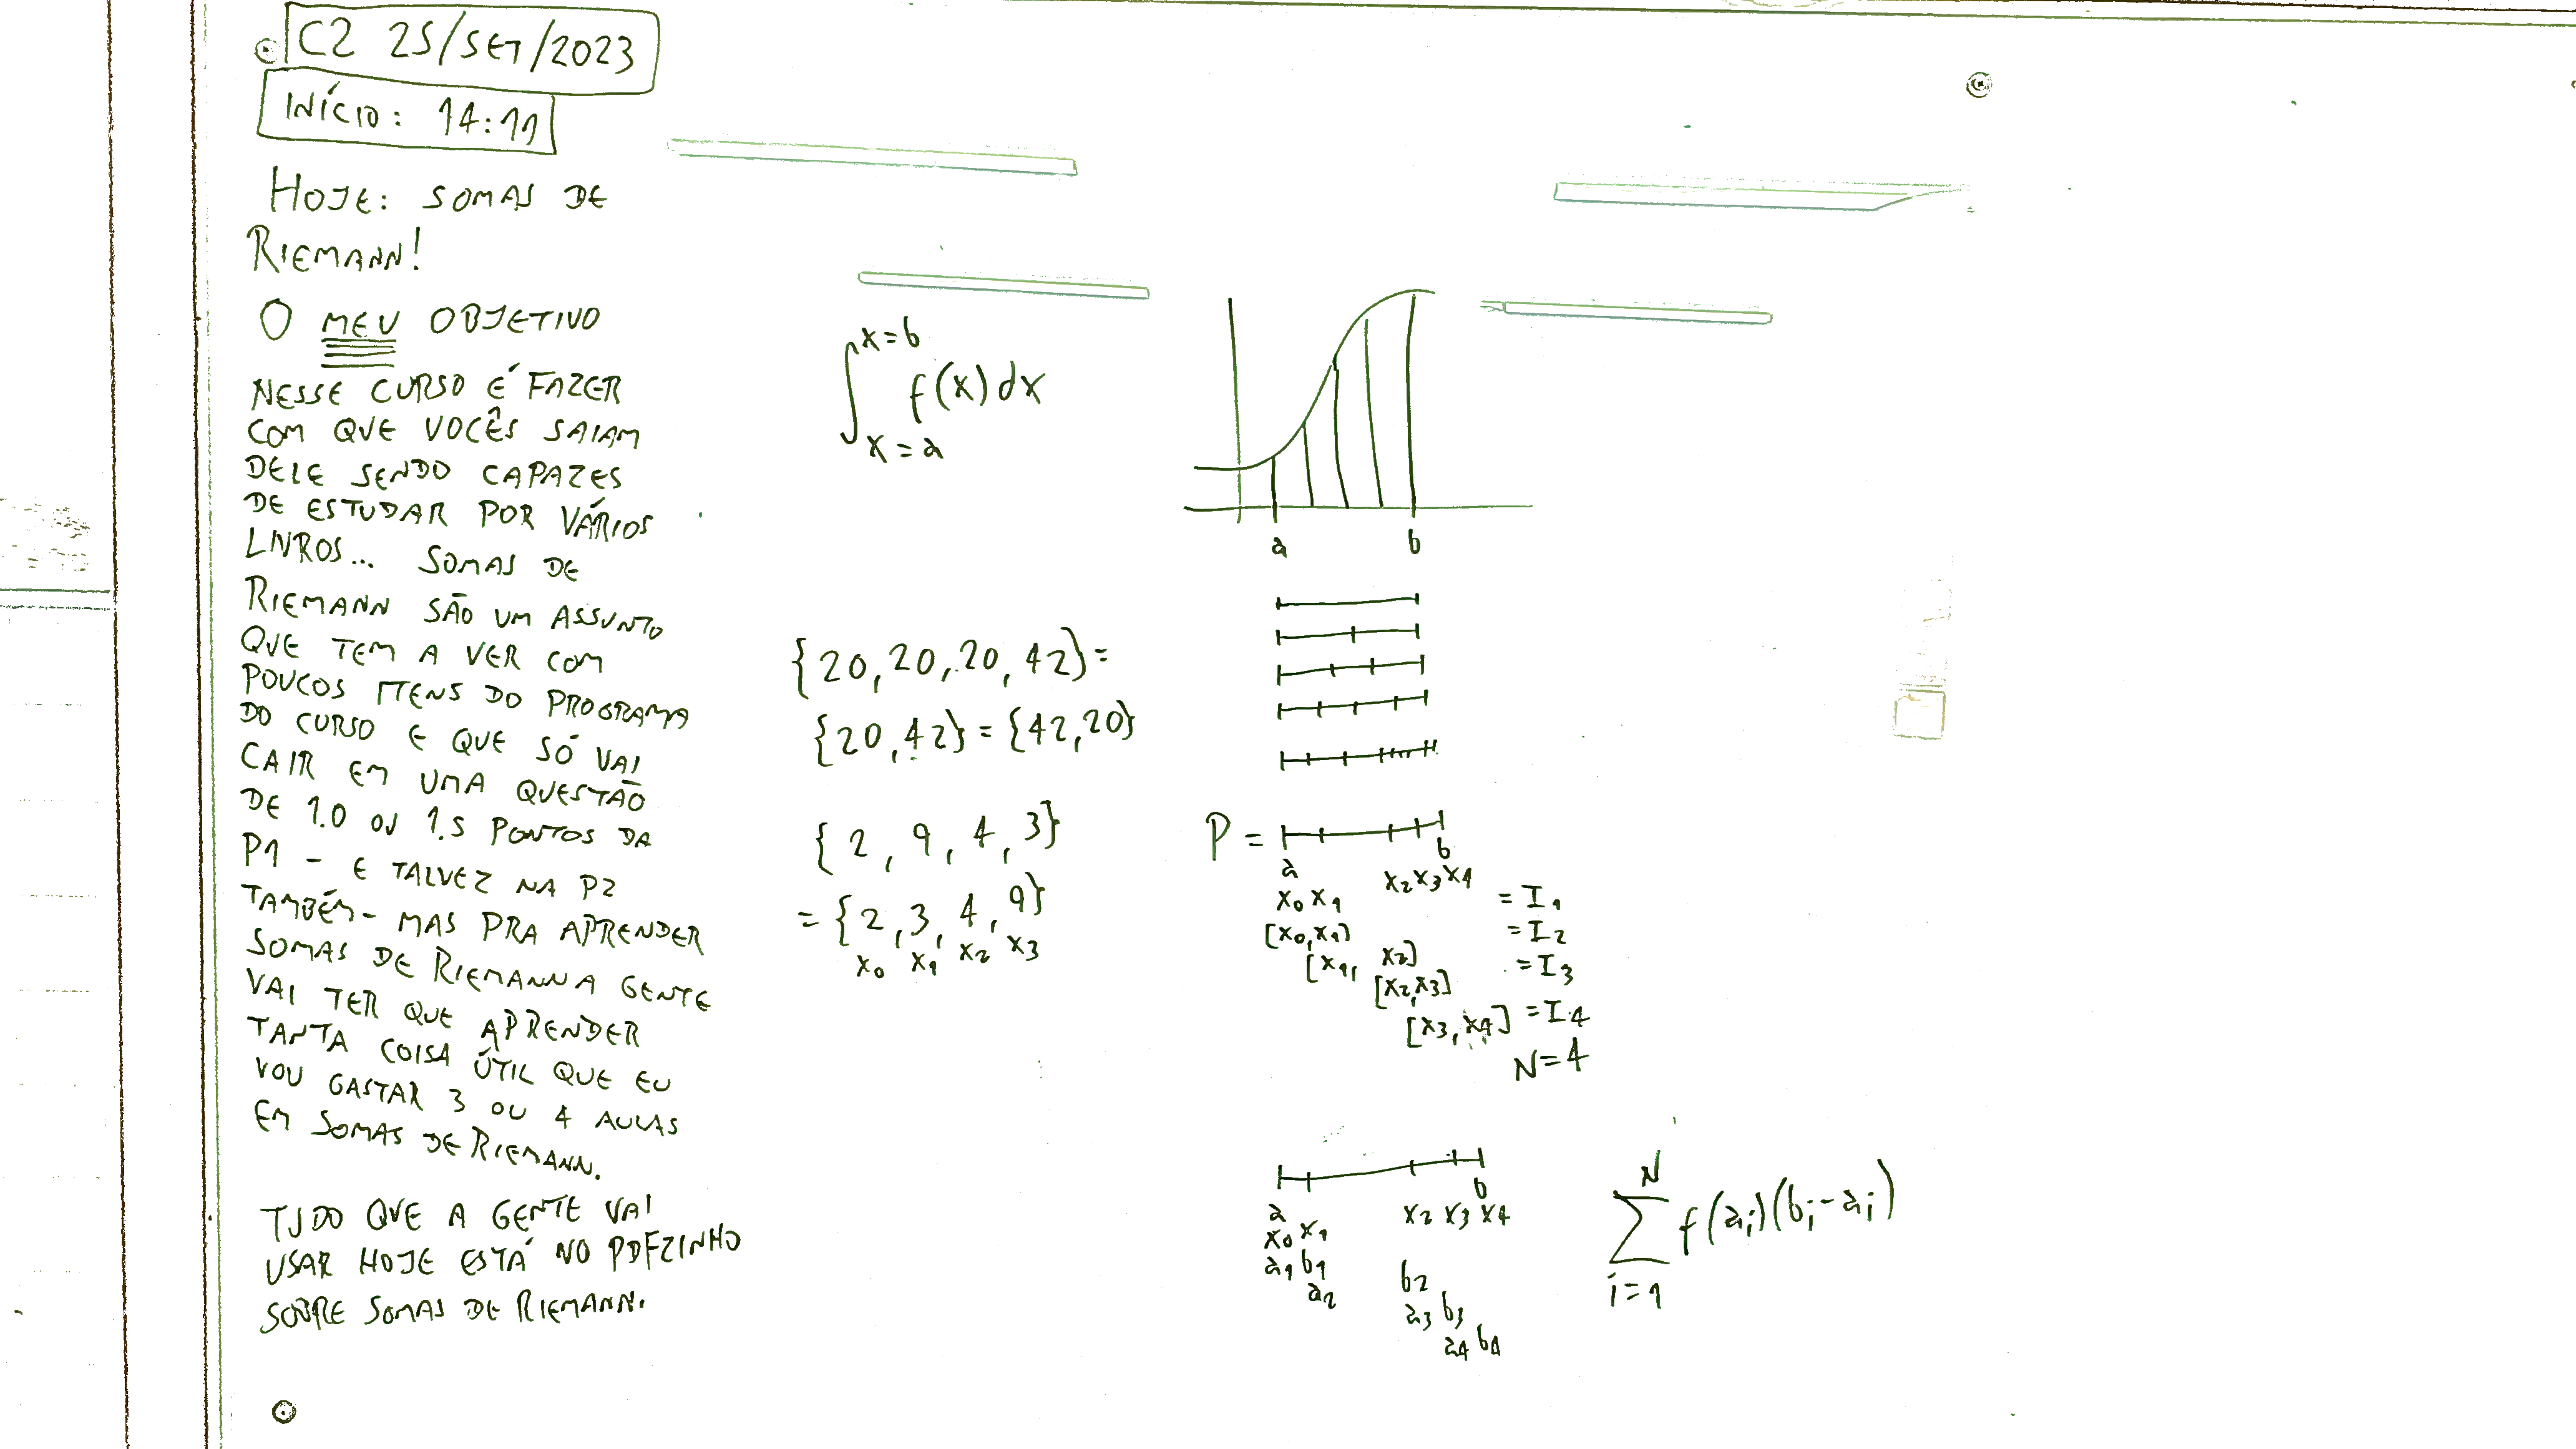 C2 25/SET/2023
INÍCIO: 14:11
HOJE: SOMAS DE
RIEMANN!
O MEU OBJETIVO
NESSE CURSO É FAZER
COM QUE VOCÊS SAIAM
DELE SENDO CAPAZES
DE ESTUDAR POR VÁRIOS
LIVROS... SOMAS DE
RIEMANN SÃO UM ASSUNTO
QUE TEM A VER COM
POUCOS ITENS DO PROGRAMA
DO CURSO E QUE SÓ VAI
CAIR EM UMA QUESTÃO
DE 1.0 OU 1.5 PONTOS DA
P1 - E TALVEZ NA P2
TAMBÉM - MAS PRA APRENDER
SOMAS DE RIEMANN A GENTE
VAI TER QUE APRENDER
TANTA COISA ÚTIL QUE EU
VOU GASTAR 3 OU 4 AULAS
EM SOMAS DE RIEMANN.
TUDO QUE A GENTE VAI
USAR HOJE ESTÁ NO PDFZINHO
SOBRE SOMAS DE RIEMANN.
∫ x=b
f(x)dx
x=a
{20,20,20,42}=
{20,42}={42,20}
{2,9,4,3}
={2,3,4,9}
x₀ x₁ x₂ x₃
a b
P =
a b
x₀ x₁ x₂ x₃ x₄
[x₀,x₁] = I₁
[x₁, x₂] = I₂
[x₂,x₃] = I₃
[x₃,x₄] = I₄
N=4
a b
x₀ x₁ x₂ x₃ x₄
a₁ b₁
a₂ b₂
a₃ b₃
a₄ b₄
N
∑ f(aᵢ)(bᵢ-aᵢ)
i=1